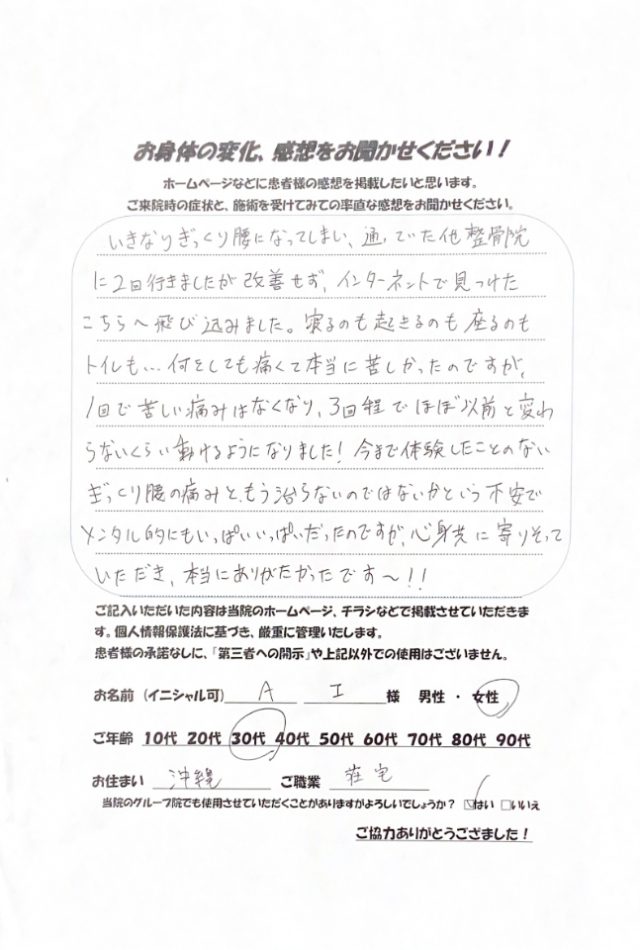 お身体の変化、感想をお聞かせください！
ホームページなどに患者様の感想を掲載したいと思います。
ご来院時の症状と、施術を受けてみての率直な感想をお聞かせください。
いきなりぎっくり腰になってしまい、通っていた他整骨院
に2回行きましたが改善せず、インターネットで見つけた
こちらへ飛び込みました。寝るのも起きるのも座るのも
トイレも…何をしても痛くて本当に苦しかったのですが、
1回で苦しい痛みはなくなり、3回程でほぼ以前と変わ
らないくらい動けるようになりました！今まで体験したことのない
ぎっくり腰の痛みと、もう治らないのではないかという不安で
メンタル的にもいっぱいいっぱいだったのですが、心身共に寄りそって
いただき、本当にありがたかったです〜！！
ご記入いただいた内容は当院のホームページ、チラシなどで掲載させていただきま
す。個人情報保護法に基づき、厳重に管理いたします。
患者様の承諾なしに、「第三者への開示」や上記以外での使用はございません。
お名前（イニシャル可） A I 様 男性 ・ 女性
ご年齢 10代 20代 30代 40代 50代 60代 70代 80代 90代
お住まい 沖縄 ご職業 在宅
当院のグループ院でも使用させていただくことがありますがよろしいでしょうか？ ☑はい □いいえ
ご協力ありがとうござました！